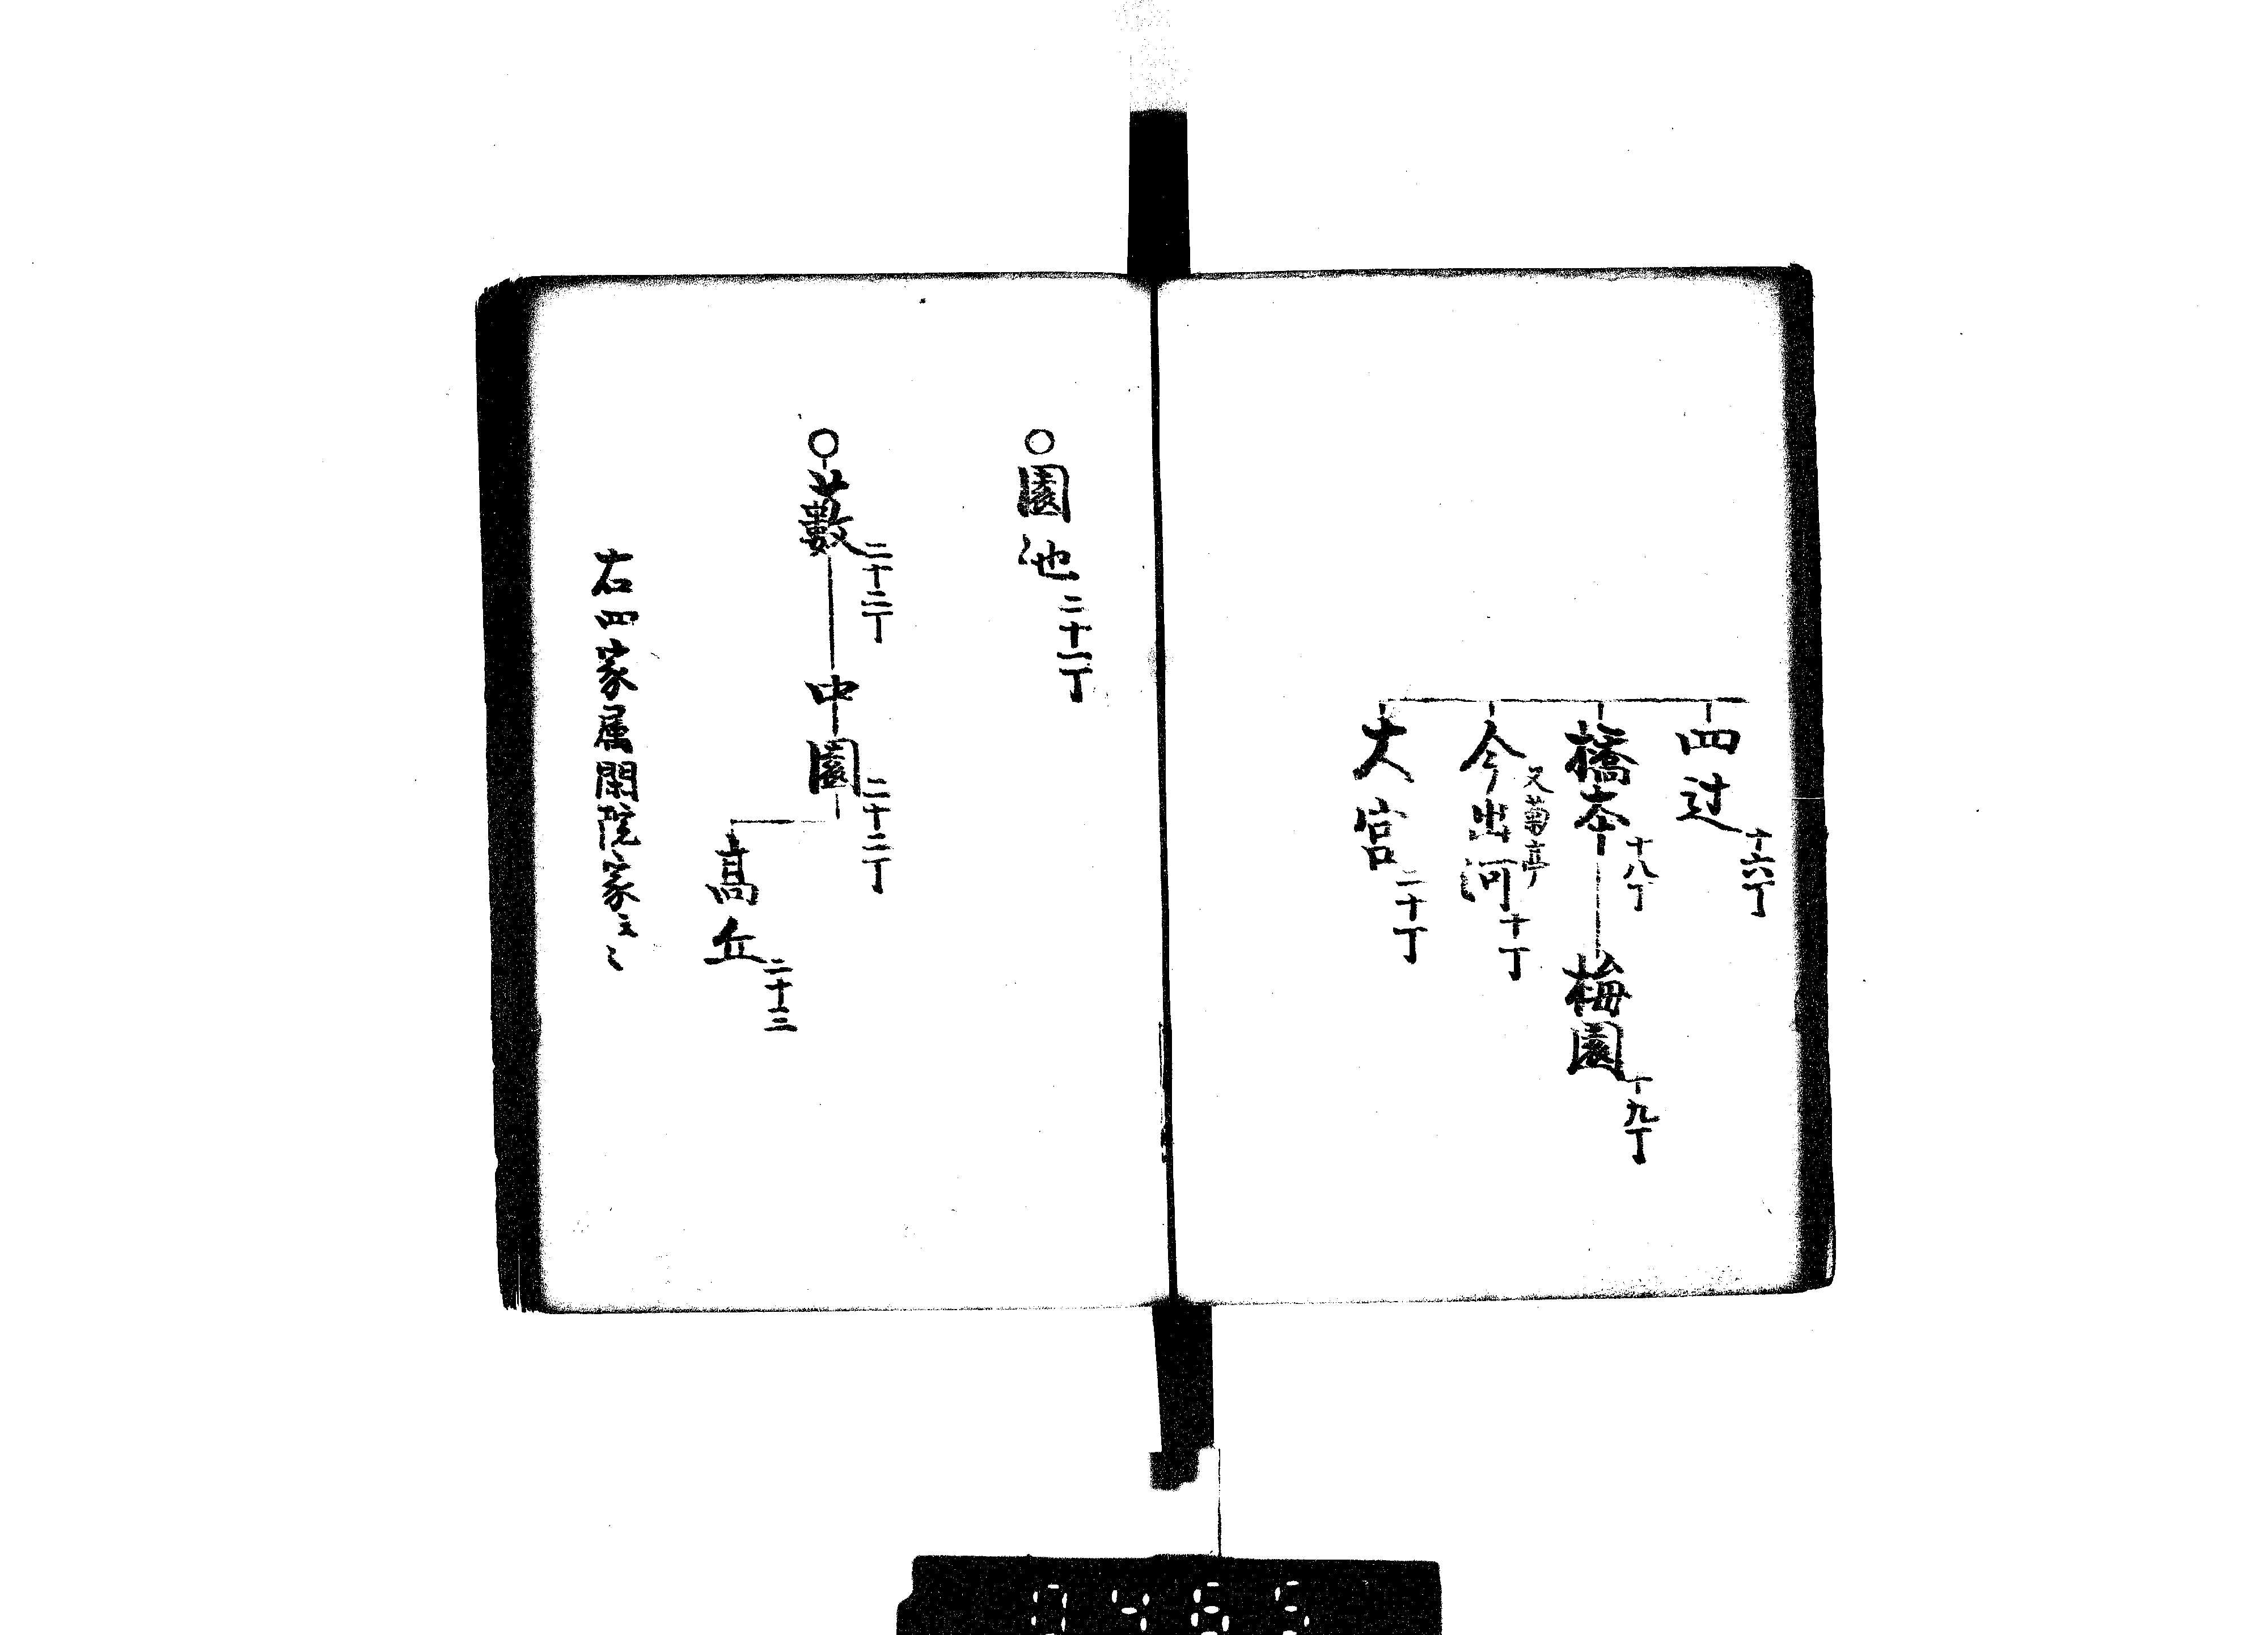 四辻十六丁
橋本十八丁
梅園十九丁
今出河十丁
又菊亭
大宮二十丁
○園池二十一丁
○藪二十二丁
中園二十二丁
高丘二十三
右四家属閑院家云々